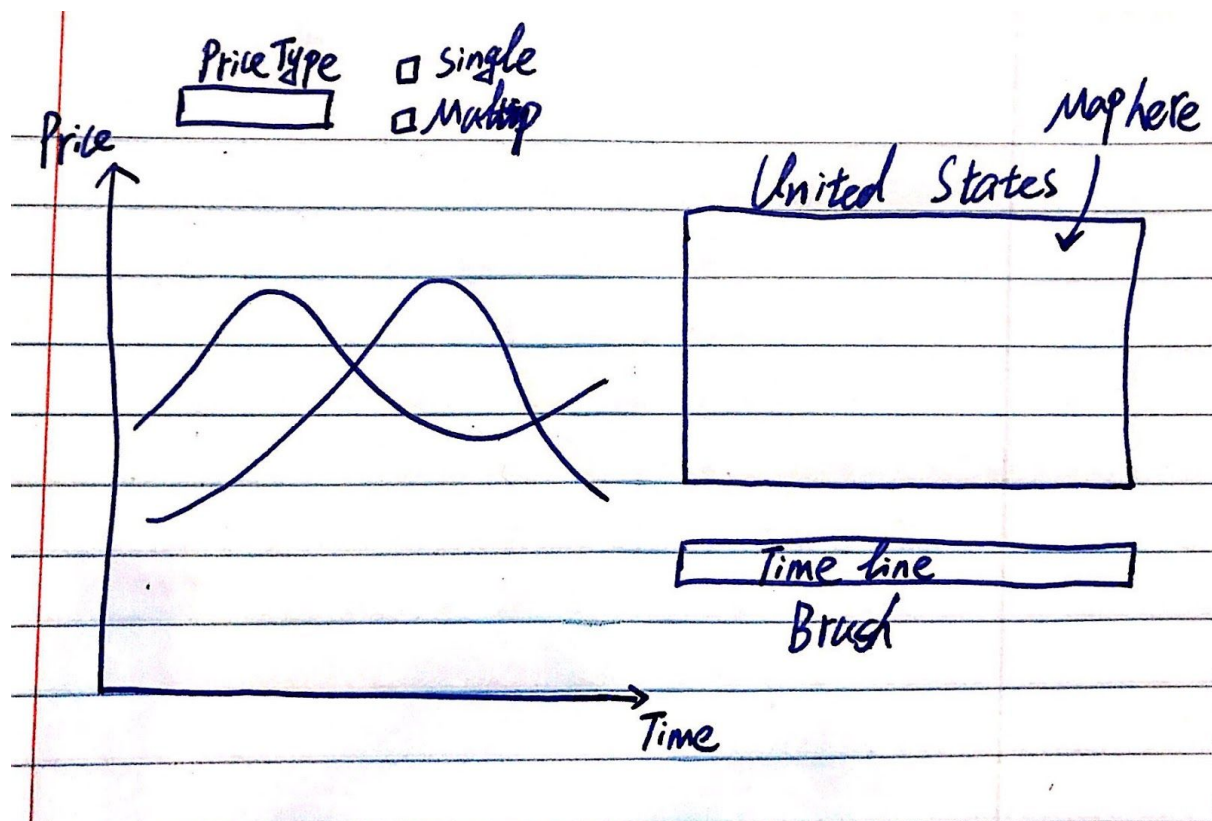 Price Type
Single
Multip
Price
Map here
United States
Time line
Brush
Time